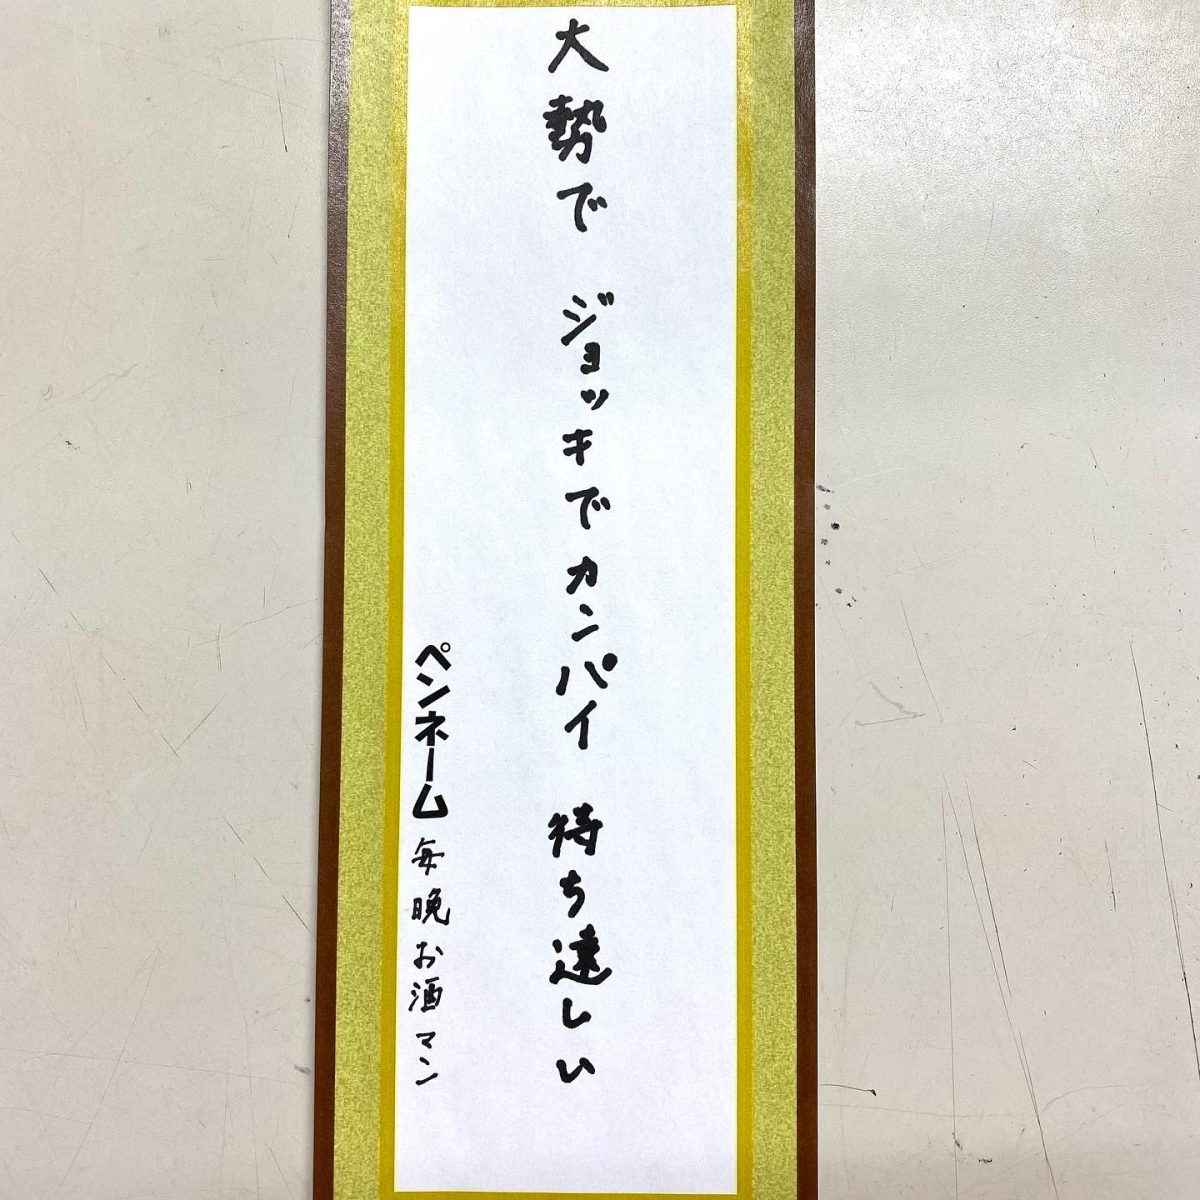 大勢で ジョッキでカンパイ 待ち遠しい
ペンネーム 毎晩お酒マン